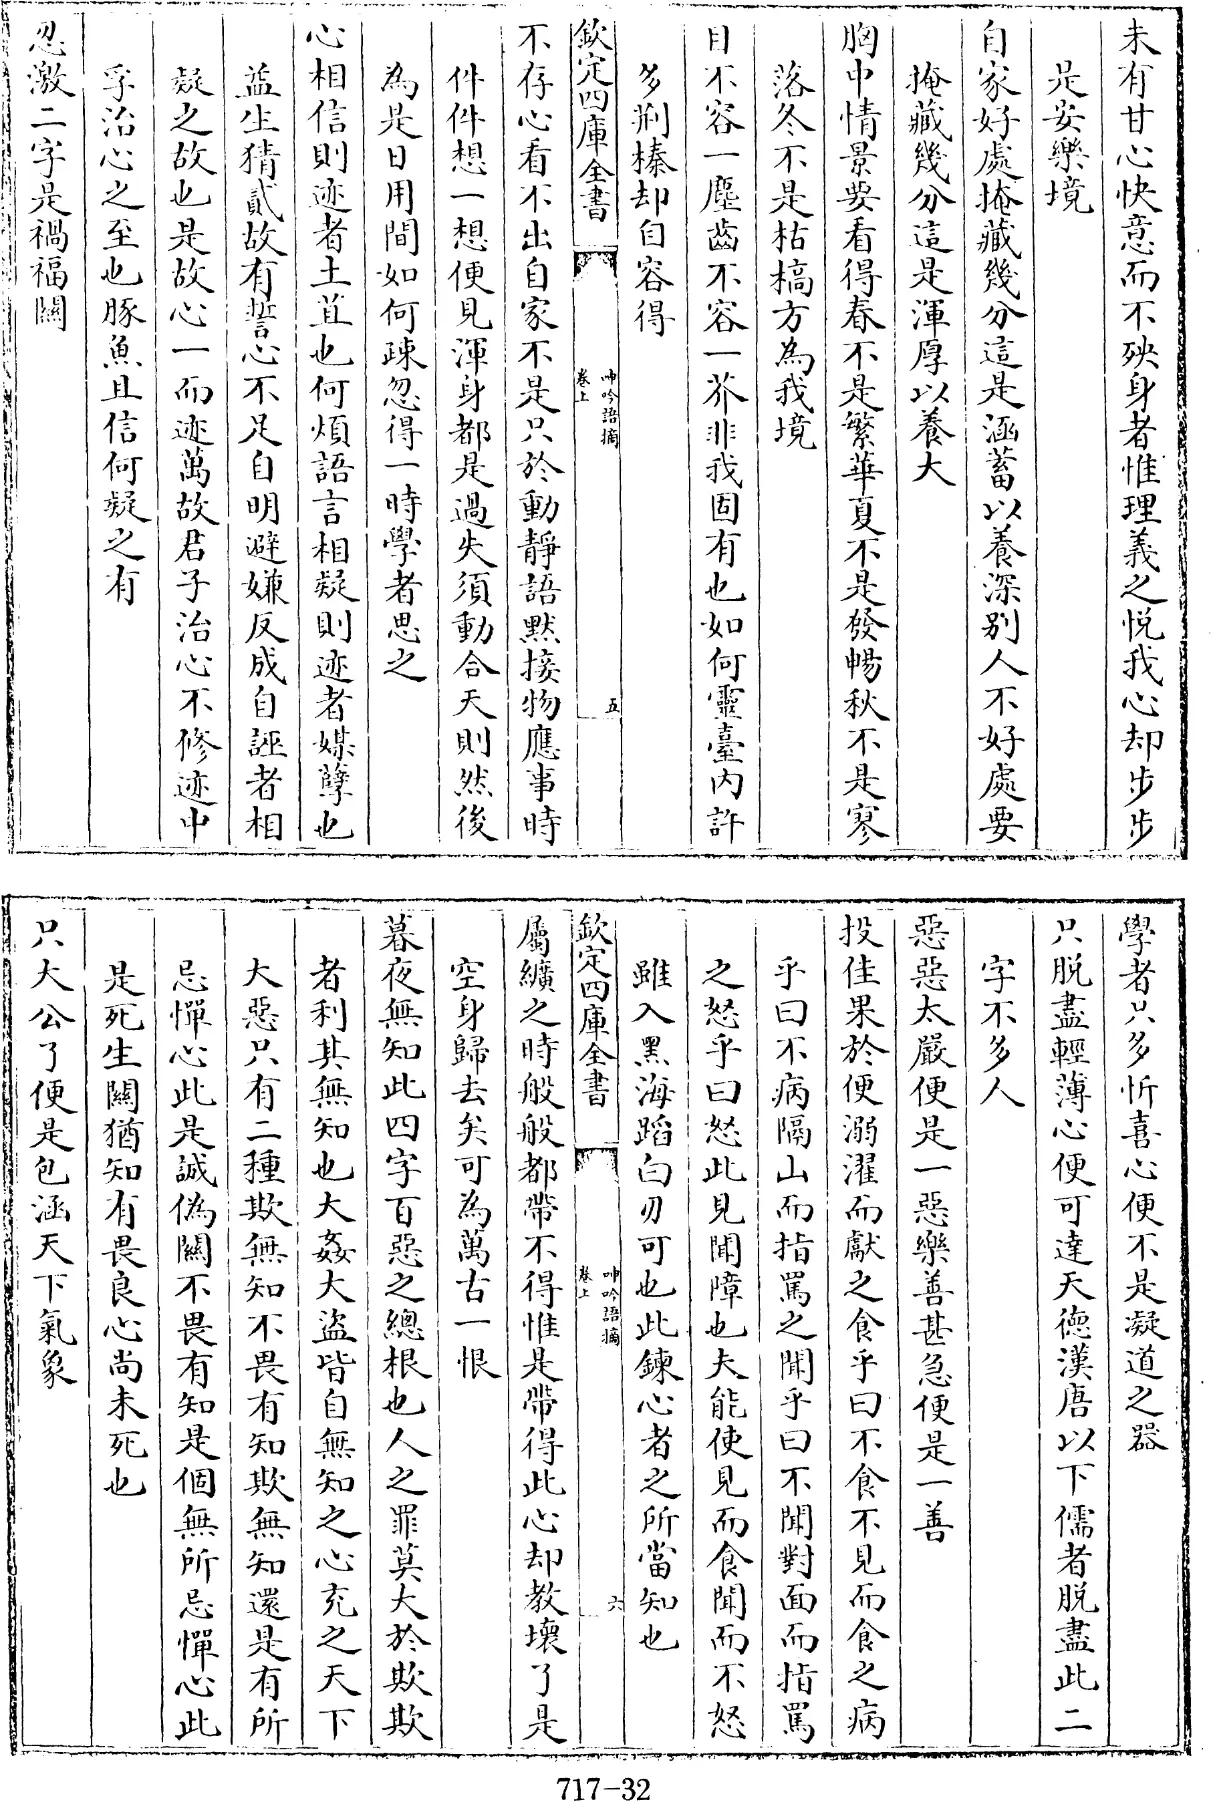 未有甘心快意而不殃身者惟理義之悦我心却步步
是安樂境
自家好處掩藏幾分這是涵蓄以養深别人不好處要
掩藏幾分這是渾厚以養大
胸中情景要看得春不是繁華夏不是發暢秋不是寥
落冬不是枯槁方為我境
目不容一塵齒不容一芥非我固有也如何靈臺内許
多荆榛却自容得
欽定四庫全書
呻吟語摘
卷上
五
不存心看不出自家不是只於動靜語黙接物應事時
件件想一想便見渾身都是過失須動合天則然後
為是日用間如何疎忽得一時學者思之
心相信則迹者土苴也何煩語言相疑則迹者媒孽也
益生猜貳故有誓心不足自明避嫌反成自誣者相
疑之故也是故心一而迹萬故君子治心不修迹中
孚治心之至也豚魚且信何疑之有
忍激二字是禍福關
學者只多忻喜心便不是凝道之器
只脱盡輕薄心便可達天德漢唐以下儒者脱盡此二
字不多人
惡惡太嚴便是一惡樂善甚急便是一善
投佳果於便溺濯而獻之食乎曰不食不見而食之病
乎曰不病隔山而指罵之聞乎曰不聞對面而指罵
之怒乎曰怒此見聞障也夫能使見而食聞而不怒
雖入黑海蹈白刃可也此鍊心者之所當知也
欽定四庫全書
呻吟語摘
卷上
六
屬纊之時般般都帶不得惟是帶得此心却教壞了是
空身歸去矣可為萬古一恨
暮夜無知此四字百惡之總根也人之罪莫大於欺欺
者利其無知也大姦大盜皆自無知之心充之天下
大惡只有二種欺無知不畏有知欺無知還是有所
忌憚心此是誠偽關不畏有知是個無所忌憚心此
是死生關猶知有畏良心尚未死也
只大公了便是包涵天下氣象
717-32